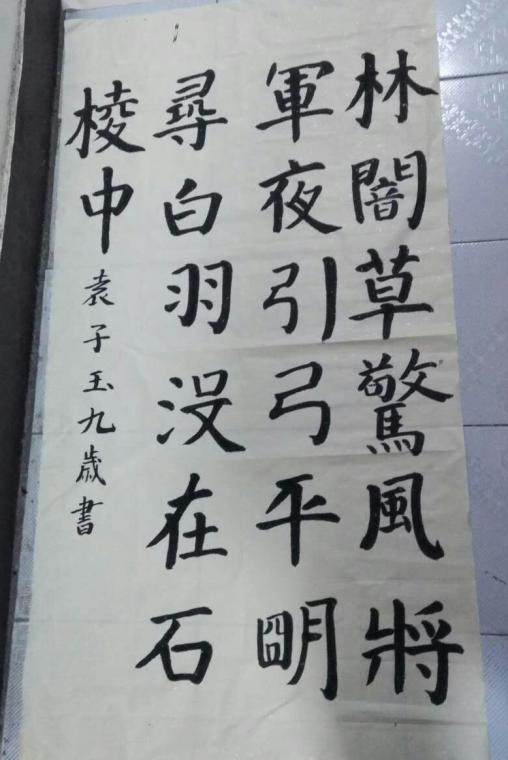 林闇草驚風將
軍夜引弓平明
尋白羽没在石
棱中
袁子玉九歲書